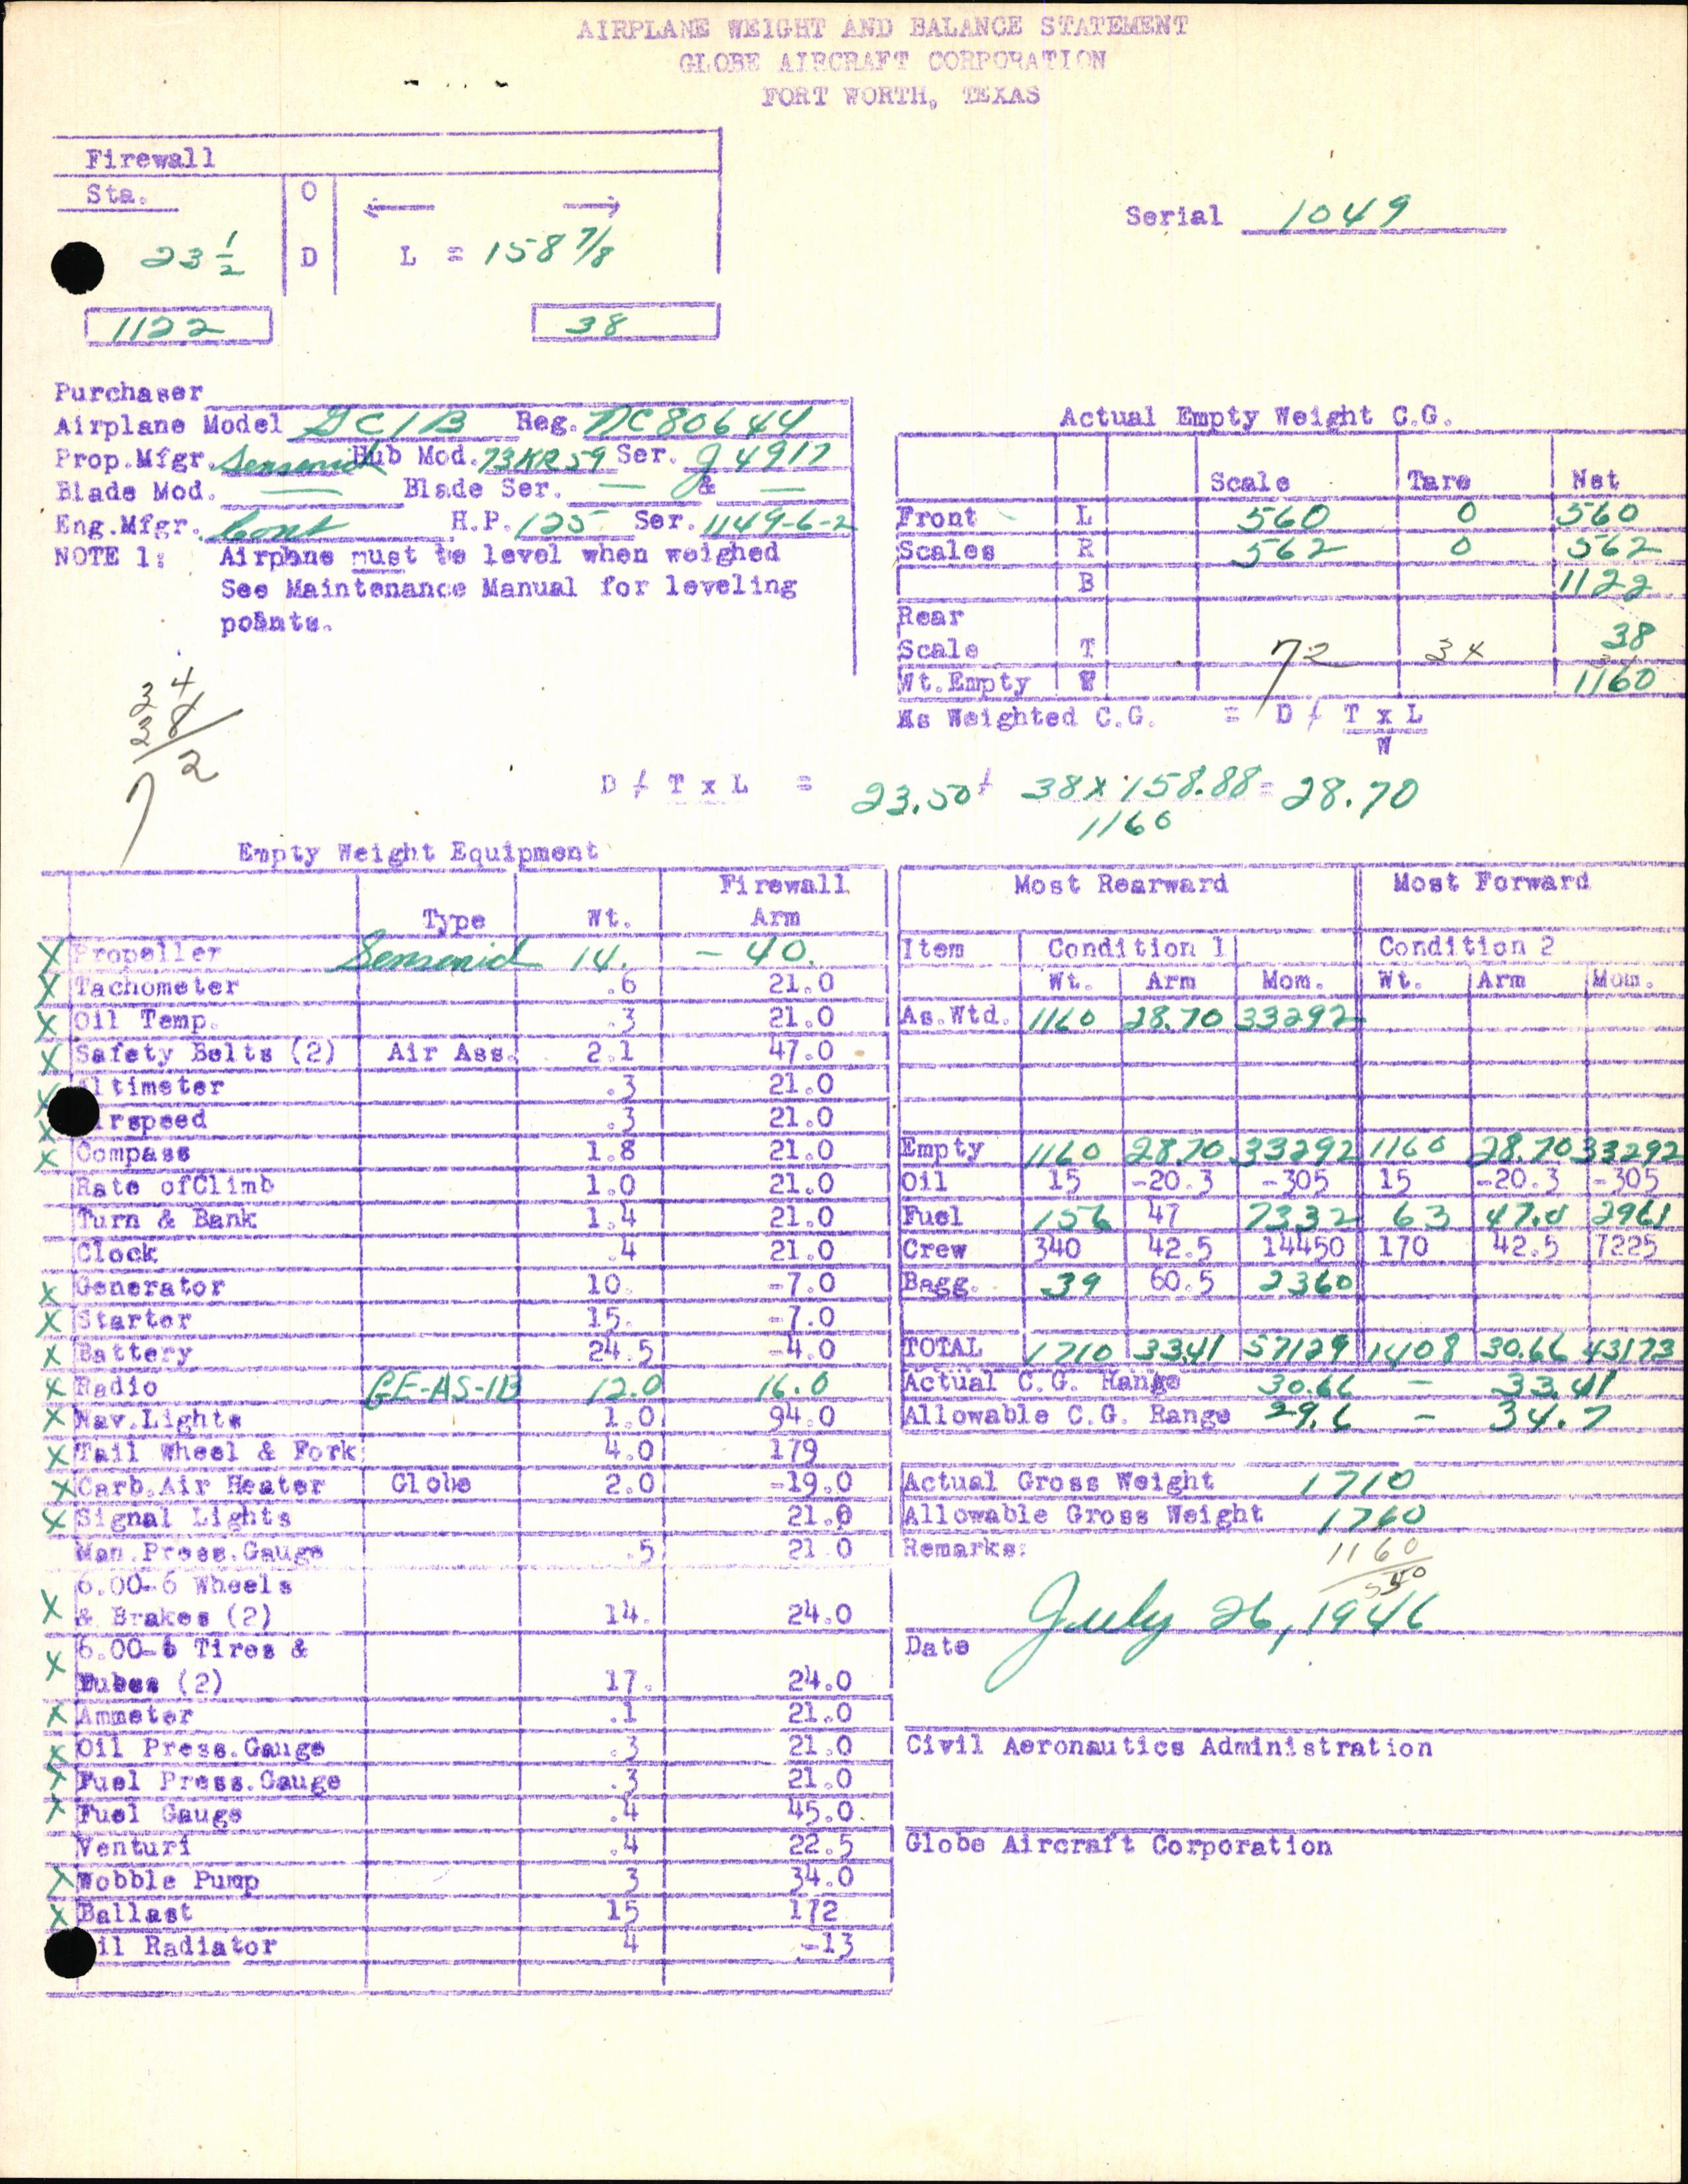 AIRPLANE WEIGHT AND BALANCE STATEMENT
GLOBE AIRCRAFT CORPORATION
FORT WORTH, TEXAS
Firewall
Sta. O
23 1/2 D L = 158 7/8
1122 38
Serial 1049
Purchaser
Airplane Model GC1B Reg. NC80644
Prop.Mfgr. Sensenich Hub Mod. 73KR59 Ser. J4917
Blade Mod. — Blade Ser. — & —
Eng.Mfgr. Cont H.P. 125 Ser. 1149-6-2
NOTE 1: Airplane must be level when weighed
See Maintenance Manual for leveling
points.
34
38
72
Actual Empty Weight C.G.
Scale Tare Net
Front L 560 0 560
Scales R 562 0 562
B 1122
Rear
Scale T 72 34 38
Wt.Empty W 1160
As Weighted C.G. = D / T x L
W
D / T x L = 23.50 + 38 x 158.88 = 28.70
1160
Empty Weight Equipment
Firewall
Type Wt. Arm
X Propeller Sensenich 14. -40.
X Tachometer .6 21.0
X Oil Temp. .3 21.0
X Safety Belts (2) Air Ass. 2.1 47.0
X ltimeter .3 21.0
X rspeed .3 21.0
X Compass 1.8 21.0
Rate ofClimb 1.0 21.0
Turn & Bank 1.4 21.0
Clock .4 21.0
X Generator 10. -7.0
X Starter 15. -7.0
X Battery 24.5 -4.0
X Radio GE-AS-1B 12.0 16.0
X Nav.Lights 1.0 94.0
X Tail Wheel & Fork 4.0 179
X Carb.Air Heater Globe 2.0 -19.0
X Signal Lights 21.0
Man.Press.Gauge .5 21.0
6.00-6 Wheels
X & Brakes (2) 14. 24.0
X 6.00-6 Tires &
Tubes (2) 17. 24.0
X Ammeter .1 21.0
X Oil Press.Gauge .3 21.0
X Fuel Press.Gauge .3 21.0
X Fuel Gauge .4 45.0
Venturi .4 22.5
X Wobble Pump 3 34.0
X Ballast 15 172
il Radiator 4 -13
Most Rearward Most Forward
Item Condition 1 Condition 2
Wt. Arm Mom. Wt. Arm Mom.
As.Wtd. 1160 28.70 33292
Empty 1160 28.70 33292 1160 28.70 33292
Oil 15 -20.3 -305 15 -20.3 -305
Fuel 156 47 7332 63 47.0 2961
Crew 340 42.5 14450 170 42.5 7225
Bagg. 39 60.5 2360
TOTAL 1710 33.41 57129 1408 30.66 43173
Actual C.G. Range 30.66 — 33.41
Allowable C.G. Range 29.6 — 34.7
Actual Gross Weight 1710
Allowable Gross Weight 1760
Remarks: 1160
550
July 26, 1946
Date
Civil Aeronautics Administration
Globe Aircraft Corporation